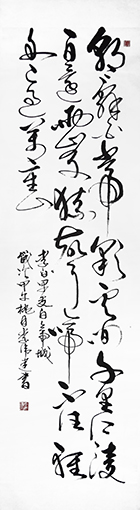 朝辞白帝彩云间千里江陵
一日还两岸猿声啼不住轻
舟已过万重山
李白早发白帝城
岁次甲午桃月书